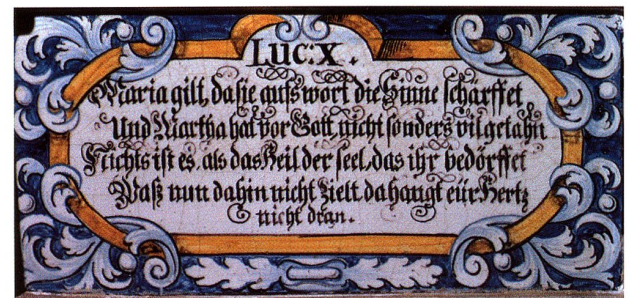 Luc: X.
Maria gilt, da sie aufs wort die Sinne schärffet,
Und Martha hat vor Gott nicht sonders vil getahn
Nichts ist es, als das Heil der seel, das ihr bedörffet
Waß nun dahin nicht zielt, da hangt eür Hertz
nicht dran.